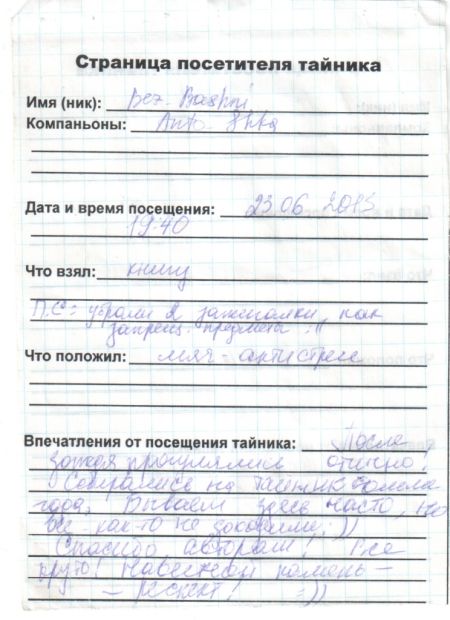 Страница посетителя тайника
Имя (ник): Bez_Bashni
Компаньоны: Anto_Shka
Дата и время посещения: 23.06.2013
19:40
Что взял: книгу
П.С: убрали 2 зажигалки, как
запрещ. предмета :!!
Что положил: мяч-антистресс
Впечатления от посещения тайника: После
дождя прогулялись отлично!
Собирались на тайник больше
года, бываем здесь часто, но
все как-то не доходили :))
Спасибо авторам! Все
круто! Навесной камень -
- респект! :))